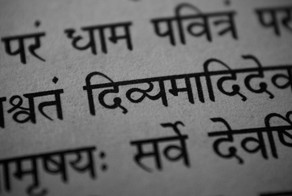 परं धाम पवित्रं पर
श्वतं दिव्यमादिदेव
मृषयः सर्वे देवर्षि